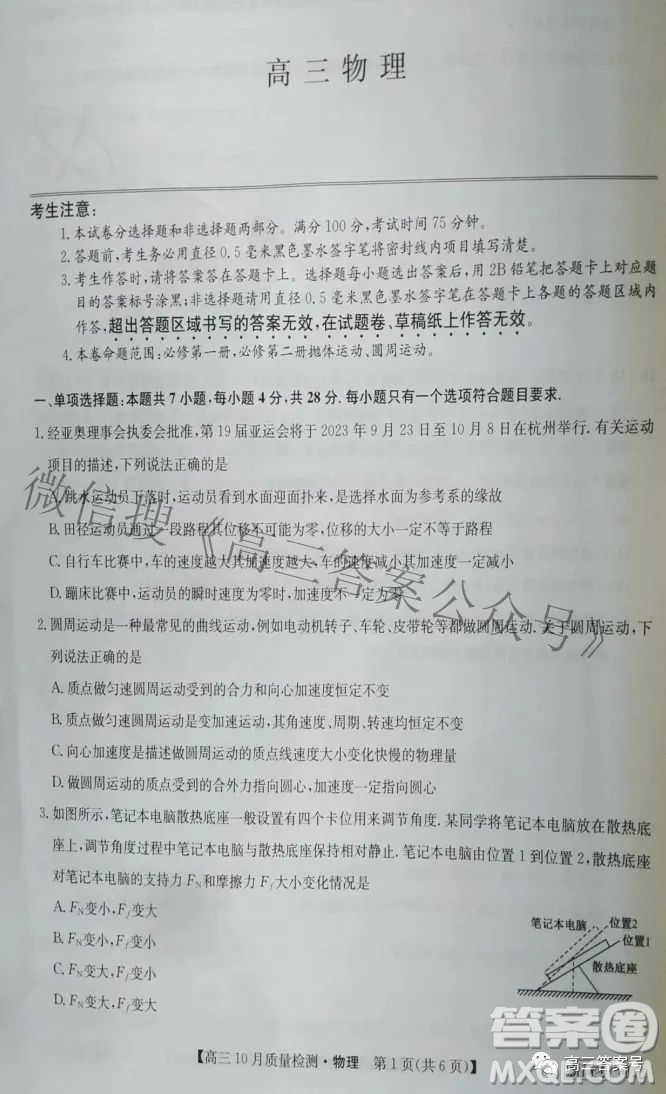 高三物理
考生注意：
1.本试卷分选择题和非选择题两部分。满分100分，考试时间75分钟。
2.答题前，考生务必用直径0.5毫米黑色墨水签字笔将密封线内项目填写清楚。
3.考生作答时，请将答案答在答题卡上。选择题每小题选出答案后，用2B铅笔把答题卡上对应题
目的答案标号涂黑；非选择题请用直径0.5毫米黑色墨水签字笔在答题卡上各题的答题区域内
作答，超出答题区域书写的答案无效，在试题卷、草稿纸上作答无效。
4.本卷命题范围：必修第一册，必修第二册抛体运动、圆周运动。
一、单项选择题：本题共7小题，每小题4分，共28分.每小题只有一个选项符合题目要求.
1.经亚奥理事会执委会批准，第19届亚运会将于2023年9月23日至10月8日在杭州举行.有关运动
项目的描述，下列说法正确的是
A.跳水运动员下落时，运动员看到水面迎面扑来，是选择水面为参考系的缘故
B.田径运动员通过一段路程其位移不可能为零，位移的大小一定不等于路程
C.自行车比赛中，车的速度越大其加速度越大，车的速度减小其加速度一定减小
D.蹦床比赛中，运动员的瞬时速度为零时，加速度不一定为零
2.圆周运动是一种最常见的曲线运动，例如电动机转子、车轮、皮带轮等都做圆周运动.关于圆周运动，下
列说法正确的是
A.质点做匀速圆周运动受到的合力和向心加速度恒定不变
B.质点做匀速圆周运动是变加速运动，其角速度、周期、转速均恒定不变
C.向心加速度是描述做圆周运动的质点线速度大小变化快慢的物理量
D.做圆周运动的质点受到的合外力指向圆心，加速度一定不指向圆心
3.如图所示，笔记本电脑散热底座一般设置有四个卡位用来调节角度.某同学将笔记本电脑放在散热底
座上，调节角度过程中笔记本电脑与散热底座保持相对静止.笔记本电脑由位置1到位置2，散热底座
对笔记本电脑的支持力FN和摩擦力Ff大小变化情况是
A.FN变小，Ff变大
B.FN变小，Ff变小
C.FN变大，Ff变小
D.FN变大，Ff变大
笔记本电脑
位置2
位置1
散热底座
【高三10月质量检测·物理 第1页（共6页）】
微信搜《高三答案公众号》
答案圈
MXQE.COM
高三答案号